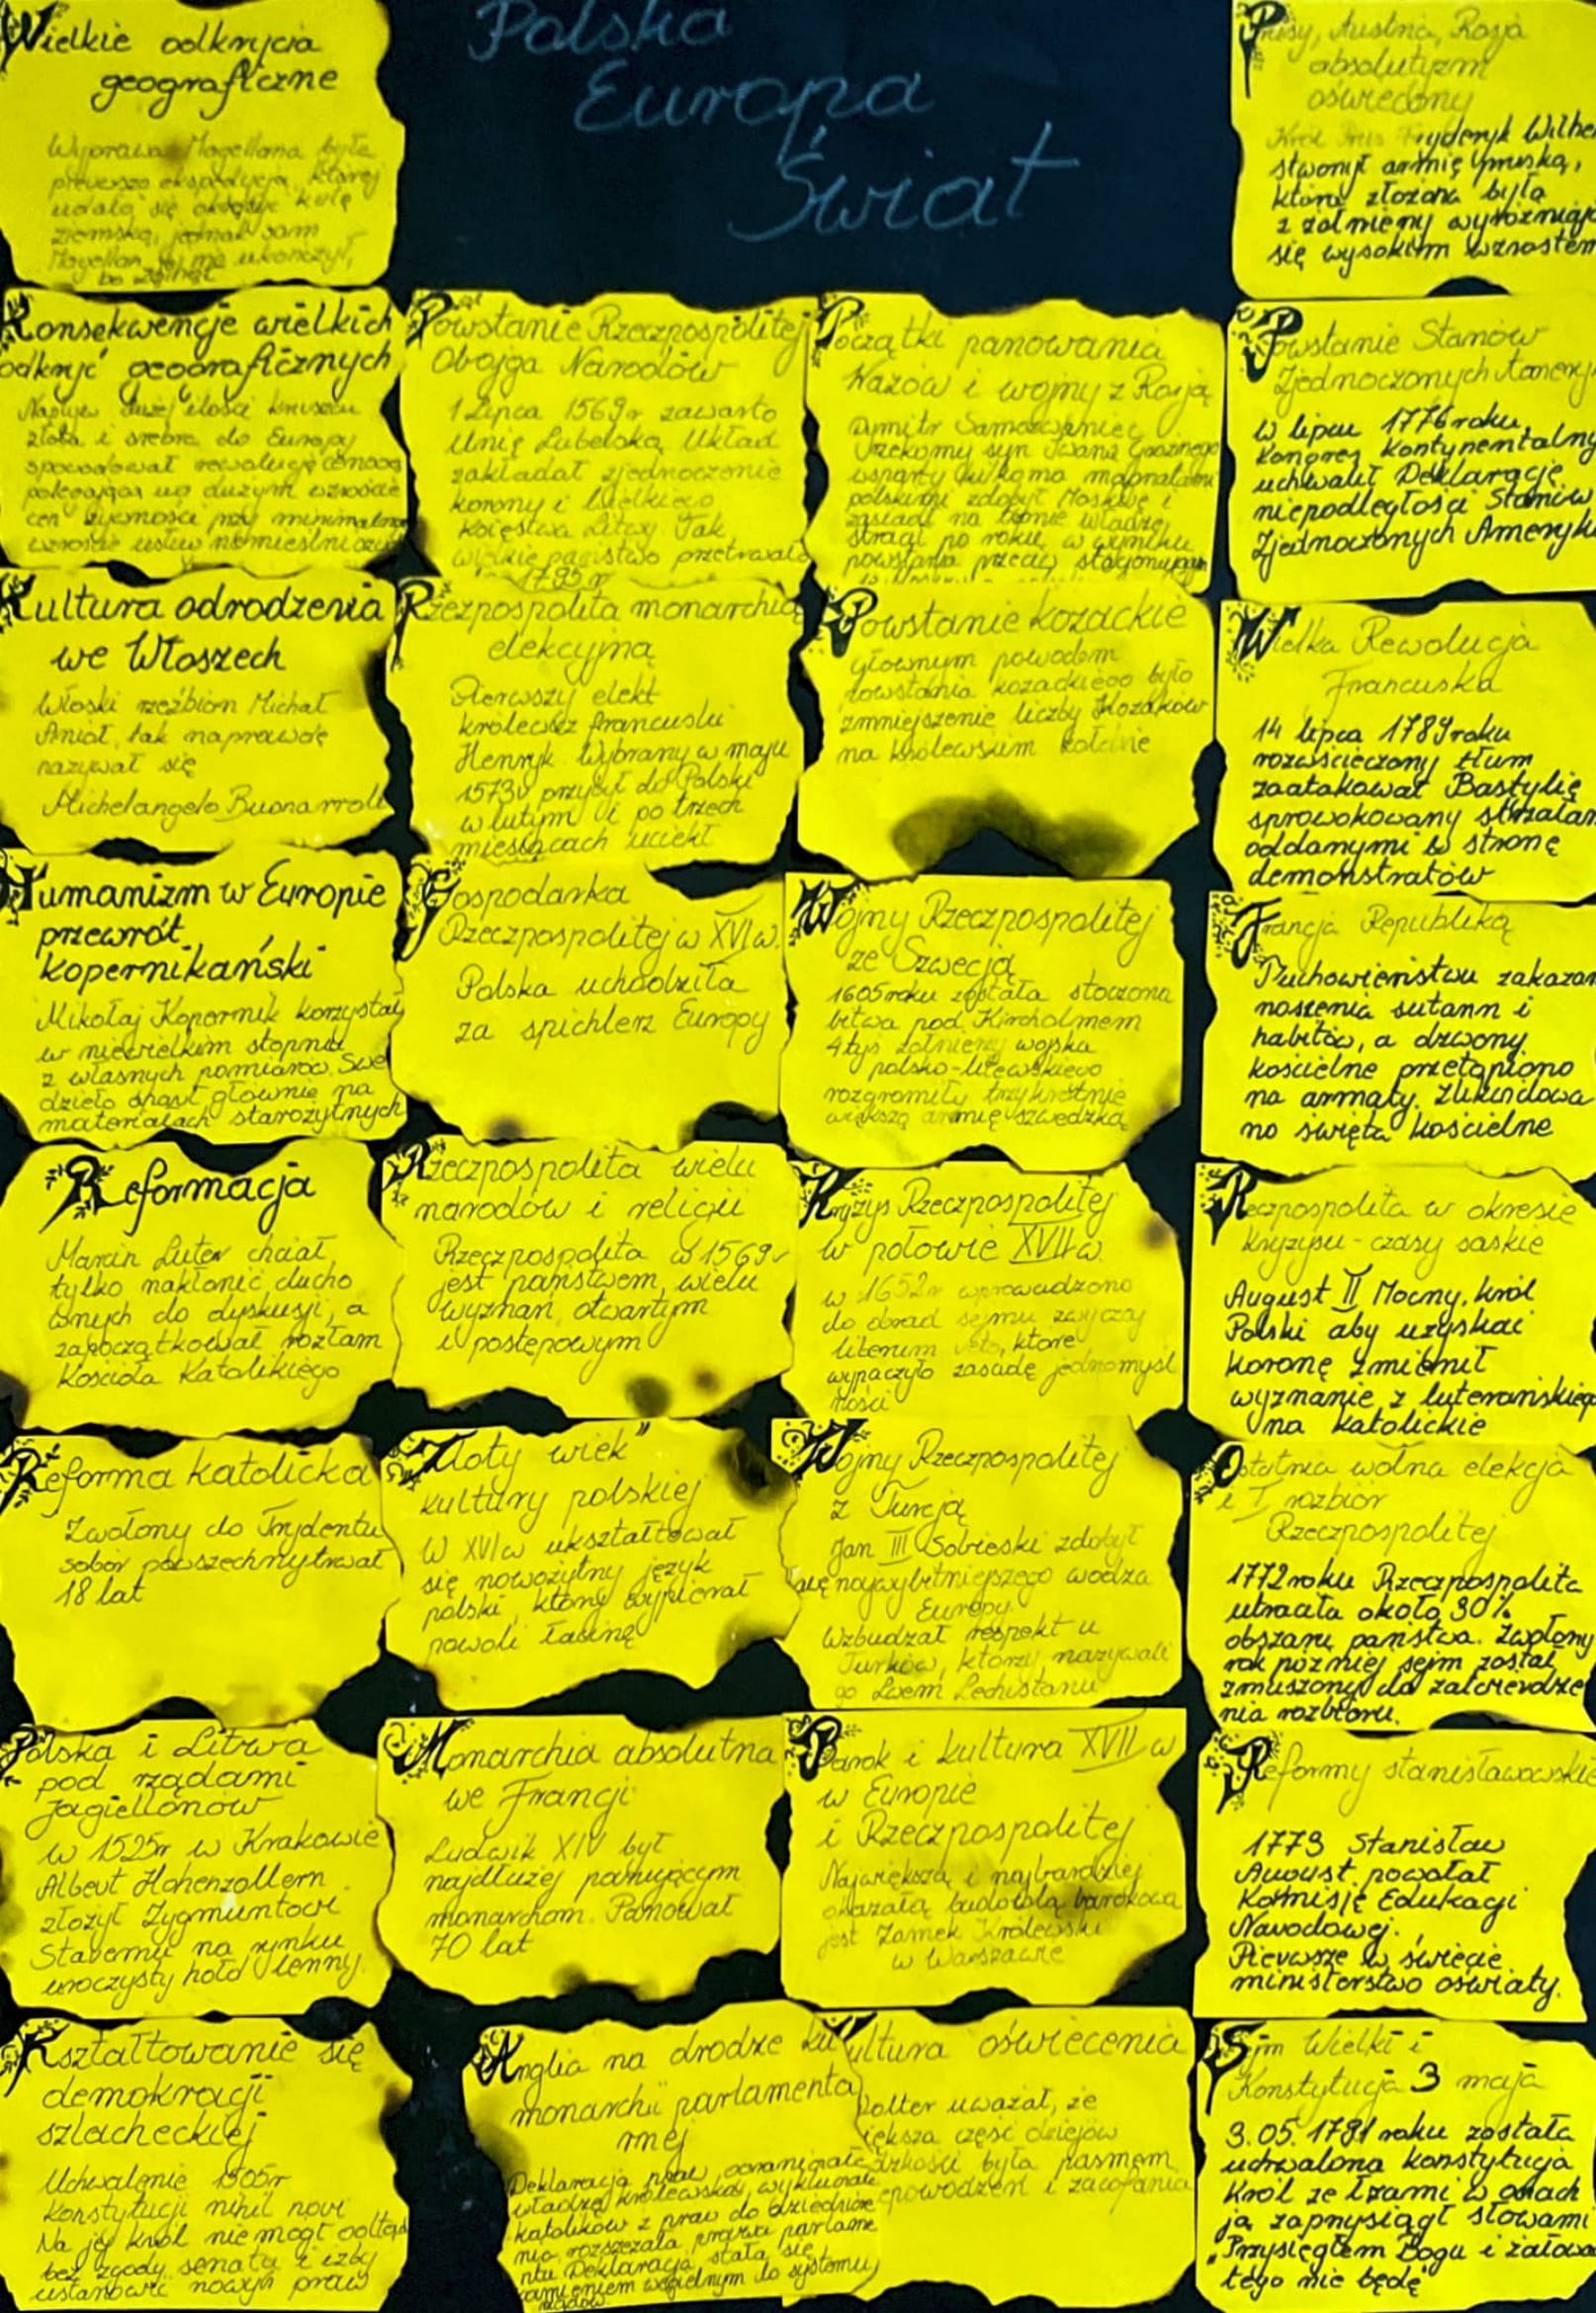 Polska
Europa
Świat
Wielkie odkrycia
geograficzne
Wyprawa Magellana była
pierwszą ekspedycją, której
udało się okrążyć kulę
ziemską, jednak sam
Magellan jej nie ukończył,
bo zginął
Konsekwencje wielkich
odkryć geograficznych
Napływ dużej ilości kruszcu
złota i srebra do Europy
spowodował rewolucję cenową
polegającą na dużym wzroście
cen żywności przy minimalnym
wzroście usług rzemieślniczych
Kultura odrodzenia
we Włoszech
Włoski rzeźbiarz Michał
Anioł, tak naprawdę
nazywał się
Michelangelo Buonarroti
Humanizm w Europie
przewrót
kopernikański
Mikołaj Kopernik korzystał
w niewielkim stopniu
z własnych pomiarów. Swe
dzieło oparł głównie na
materiałach starożytnych
Reformacja
Marcin Luter chciał
tylko nakłonić ducho
wnych do dyskusji, a
zapoczątkował rozłam
Kościoła Katolikiego
Reforma katolicka
Zwołony do Trydentu
sobór powszechny trwał
18 lat
Polska i Litwa
pod rządami
Jagiellonów
w 1525r w Krakowie
Albert Hohenzollern
złożył Zygmuntowi
Staremu na rynku
uroczysty hołd lenny.
Kształtowanie się
demokracji
szlacheckiej
Uchwalenie 1505r
Konstytucji nihil novi
Na jej król nie mógł odtąd
bez zgody senatu i izby
ustanowić nowych praw
Powstanie Rzeczpospolitej
Obojga Narodów
1 Lipca 1569r zawarto
Unię Lubelską Układ
zakładał zjednoczenie
korony i Wielkiego
Księstwa Litwy. Tak
wielkie państwo przetrwało
1795 r
Rzezpospolita monarchią
elekcyjną
Pierwszy elekt
królewicz francuski
Henryk Wybrany w maju
1573r przybył do Polski
w lutym i po trzech
miesiącach uciekł
Gospodarka
Rzeczpospolitej w XVI w.
Polska uchodziła
za spichlerz Europy
Rzeczpospolita wielu
narodów i religii
Rzeczpospolita w 1569r
jest państwem, wielu
wyznań, otwartym
i postępowym
"Złoty wiek"
kultury polskiej
W XVI w ukształtował
się nowożytny język
polski, który wypierał
powoli łacinę
Monarchia absolutna
we Francji
Ludwik XIV był
najdłużej panującym
monarchom. Panował
70 lat
Anglia na drodze ku
monarchii parlamenta
rnej
Deklaracja praw, ograniczała
władzę królewską, wykluczała
katolików z praw do dziedzicze
nia rozszerzała prawa parlame
ntu Deklaracja stała się
kamieniem węgielnym do systemu
rządów
Początki panowania
Wazów i wojny z Rosją
Dymitr Samozwaniec
rzekomy syn Iwana Groźnego
wsparty kilkoma magnatami
polskimi zdobył Moskwę i
zasiadł na tronie władzę
stracił po roku, w wyniku
powstania przeciw stacjonującym
Powstanie kozackie
Głównym powodem
powstania kozackiego było
zmniejszenie liczby Kozaków
na królewskim żołdzie
Wojny Rzeczpospolitej
ze Szwecją
1605 roku została stoczona
bitwa pod Kircholmem
4 tyś żołnierzy wojska
polsko-litewskiego
rozgromiły trzykrotnie
większą armię szwedzką
Kryzys Rzeczpospolitej
w połowie XVII w.
w 1652r wprowadzono
do obrad sejmu zwyczaj
liberum veto, które
wypaczyło zasadę jednomyśl
ności
Wojny Rzeczpospolitej
z Turcją
Jan III Sobieski zdobył
najwybitniejszego wodza
Europy.
Wzbudzał respekt u
Turków, którzy nazywali
go Lwem Lechistanu
Barok i kultura XVII w
w Europie
i Rzeczpospolitej
Największą i najbardziej
okazałą budowlą barokową
jest Zamek Królewski
w Warszawie
Kultura oświecenia
Volter uważał, że
większa część dziejów
była pasmem
i zacofania
Prusy, Austria, Rosja
absolutyzm
oświecony
Król Prus Fryderyk Wilhe
stworzył armię pruską,
która złożona była
z żołnierzy wyróżniają
się wysokim wzrostem
Powstanie Stanów
Zjednoczonych Ameryk
W lipcu 1776 roku
Kongres Kontynentalny
uchwalił Deklarację
niepodległości Stanów
Zjednoczonych Ameryki
Wielka Rewolucja
Francuska
14 lipca 1789 roku
rozwścieczony tłum
zaatakował Bastylię
sprowokowany strzałam
oddanymi w stronę
demonstratów
Francja Republiką
Duchowieństwu zakazan
noszenia sutann i
habitów, a dzwony
kościelne przetopiono
na armaty. Zlikwidowa
no święta kościelne
Rzeczpospolita w okresie
kryzysu - czasy saskie
August II Mocny, król
Polski aby uzyskać
koronę zmienił
wyznanie z luterańskieg
na katolickie
Ostatnia wolna elekcja
i I rozbiór
Rzeczpospolitej
1772 roku Rzeczpospolita
utraciła około 30%
obszaru państwa. Zwołony
rok później sejm został
zmuszony do zatwierdze
nia rozbioru.
Reformy stanisławowskie
1773 Stanisław
August powołał
Komisję Edukacji
Narodowej.
Pierwsze w świecie
ministerstwo oświaty.
Sejm Wielki i
Konstytucja 3 maja
3.05.1791 roku została
uchwalona konstytucja
Król ze łzami w oczach
ją zaprzysiągł słowami
"Przysięgłem Bogu i żałowa
tego nie będę"